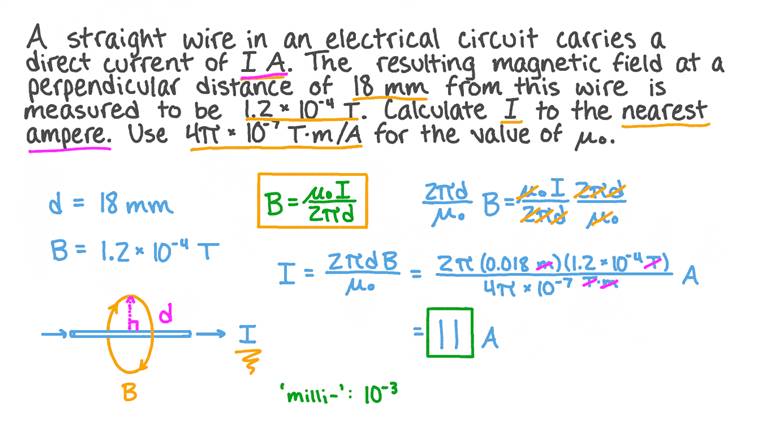 A straight wire in an electrical circuit carries a
direct current of I A. The resulting magnetic field at a
perpendicular distance of 18 mm from this wire is
measured to be 1.2 × 10⁻⁴ T. Calculate I to the nearest
ampere. Use 4π × 10⁻⁷ T·m/A for the value of μ₀.
d = 18 mm
B = 1.2 × 10⁻⁴ T
B = μ₀I / 2πd
2πd / μ₀ B = μ₀I / 2πd 2πd / μ₀
I = 2πdB / μ₀ = 2π(0.018 m)(1.2 × 10⁻⁴ T) / 4π × 10⁻⁷ T·m A
= 11 A
d
I
B
'milli-': 10⁻³